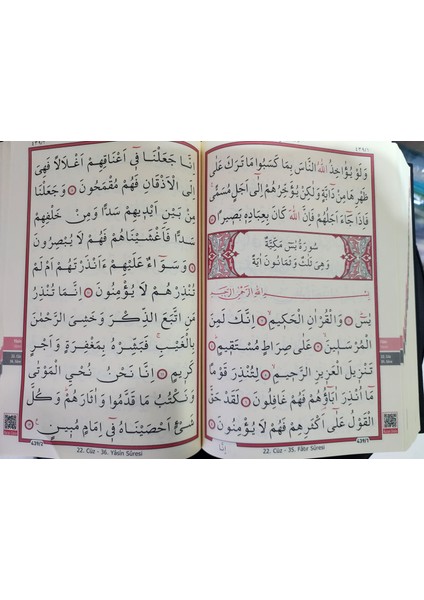 وَلَوْ يُؤَاخِذُ اللّٰهُ النَّاسَ بِمَا كَسَبُوا مَا تَرَكَ عَلٰى
ظَهْرِهَا مِنْ دَٓابَّةٍ وَلٰكِنْ يُؤَخِّرُهُمْ اِلٰٓى اَجَلٍ مُسَمًّىۚ
فَاِذَا جَٓاءَ اَجَلُهُمْ فَاِنَّ اللّٰهَ كَانَ بِعِبَادِه۪ بَص۪يرًا
سُورَةُ يٰسٓ مَكِّيَّةٌ
وَهِيَ ثَلٰثٌ وَثَمَانُونَ اٰيَةً
بِسْمِ اللّٰهِ الرَّحْمٰنِ الرَّح۪يمِ
يٰسٓۜ وَالْقُرْاٰنِ الْحَك۪يمِۙ اِنَّكَ لَمِنَ
الْمُرْسَل۪ينَۙ عَلٰى صِرَاطٍ مُسْتَق۪يمٍۜ
تَنْز۪يلَ الْعَز۪يزِ الرَّح۪يمِۙ لِتُنْذِرَ قَوْمًا
مَٓا اُنْذِرَ اٰبَٓاؤُ۬هُمْ فَهُمْ غَافِلُونَ لَقَدْ حَقَّ
الْقَوْلُ عَلٰٓى اَكْثَرِهِمْ فَهُمْ لَا يُؤْمِنُونَ
اِنَّا
22. Cüz - 35. Fâtır Sûresi
اِنَّا جَعَلْنَا ف۪ٓي اَعْنَاقِهِمْ اَغْلَالًا فَهِيَ
اِلَى الْاَذْقَانِ فَهُمْ مُقْمَحُونَ وَجَعَلْنَا
مِنْ بَيْنِ اَيْد۪يهِمْ سَدًّا وَمِنْ خَلْفِهِمْ
سَدًّا فَاَغْشَيْنَاهُمْ فَهُمْ لَا يُبْصِرُونَ
وَسَوَٓاءٌ عَلَيْهِمْ ءَاَنْذَرْتَهُمْ اَمْ لَمْ
تُنْذِرْهُمْ لَا يُؤْمِنُونَ اِنَّمَا تُنْذِرُ
مَنِ اتَّبَعَ الذِّكْرَ وَخَشِيَ الرَّحْمٰنَ
بِالْغَيْبِۚ فَبَشِّرْهُ بِمَغْفِرَةٍ وَاَجْرٍ
كَر۪يمٍ اِنَّا نَحْنُ نُحْيِ الْمَوْتٰى
وَنَكْتُبُ مَا قَدَّمُوا وَاٰثَارَهُمْۜ وَكُلَّ
شَيْءٍ اَحْصَيْنَاهُ ف۪ٓي اِمَامٍ مُب۪ينٍ۟
22. Cüz - 36. Yâsîn Sûresi